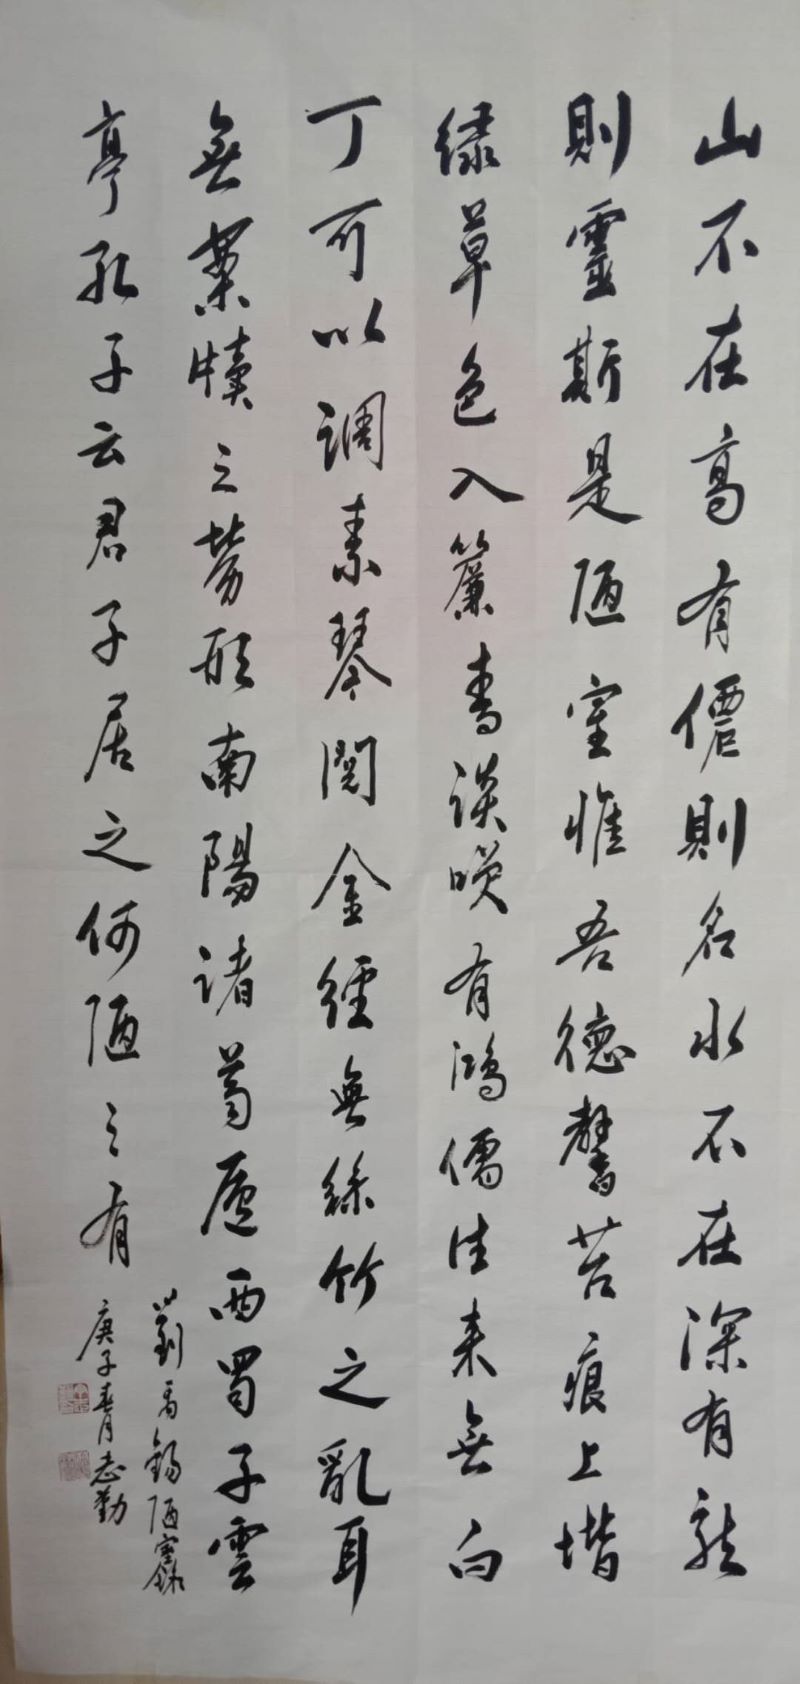 山不在高有僊則名水不在深有龍
則靈斯是陋室惟吾德馨苔痕上堦
緑草色入簾青談咲有鴻儒往来無白
丁可以調素琴閲金經無絲竹之亂耳
無案牘之勞形南陽諸葛廬西蜀子雲
亭孔子云君子居之何陋之有
劉禹錫陋室銘
庚子春月志勤